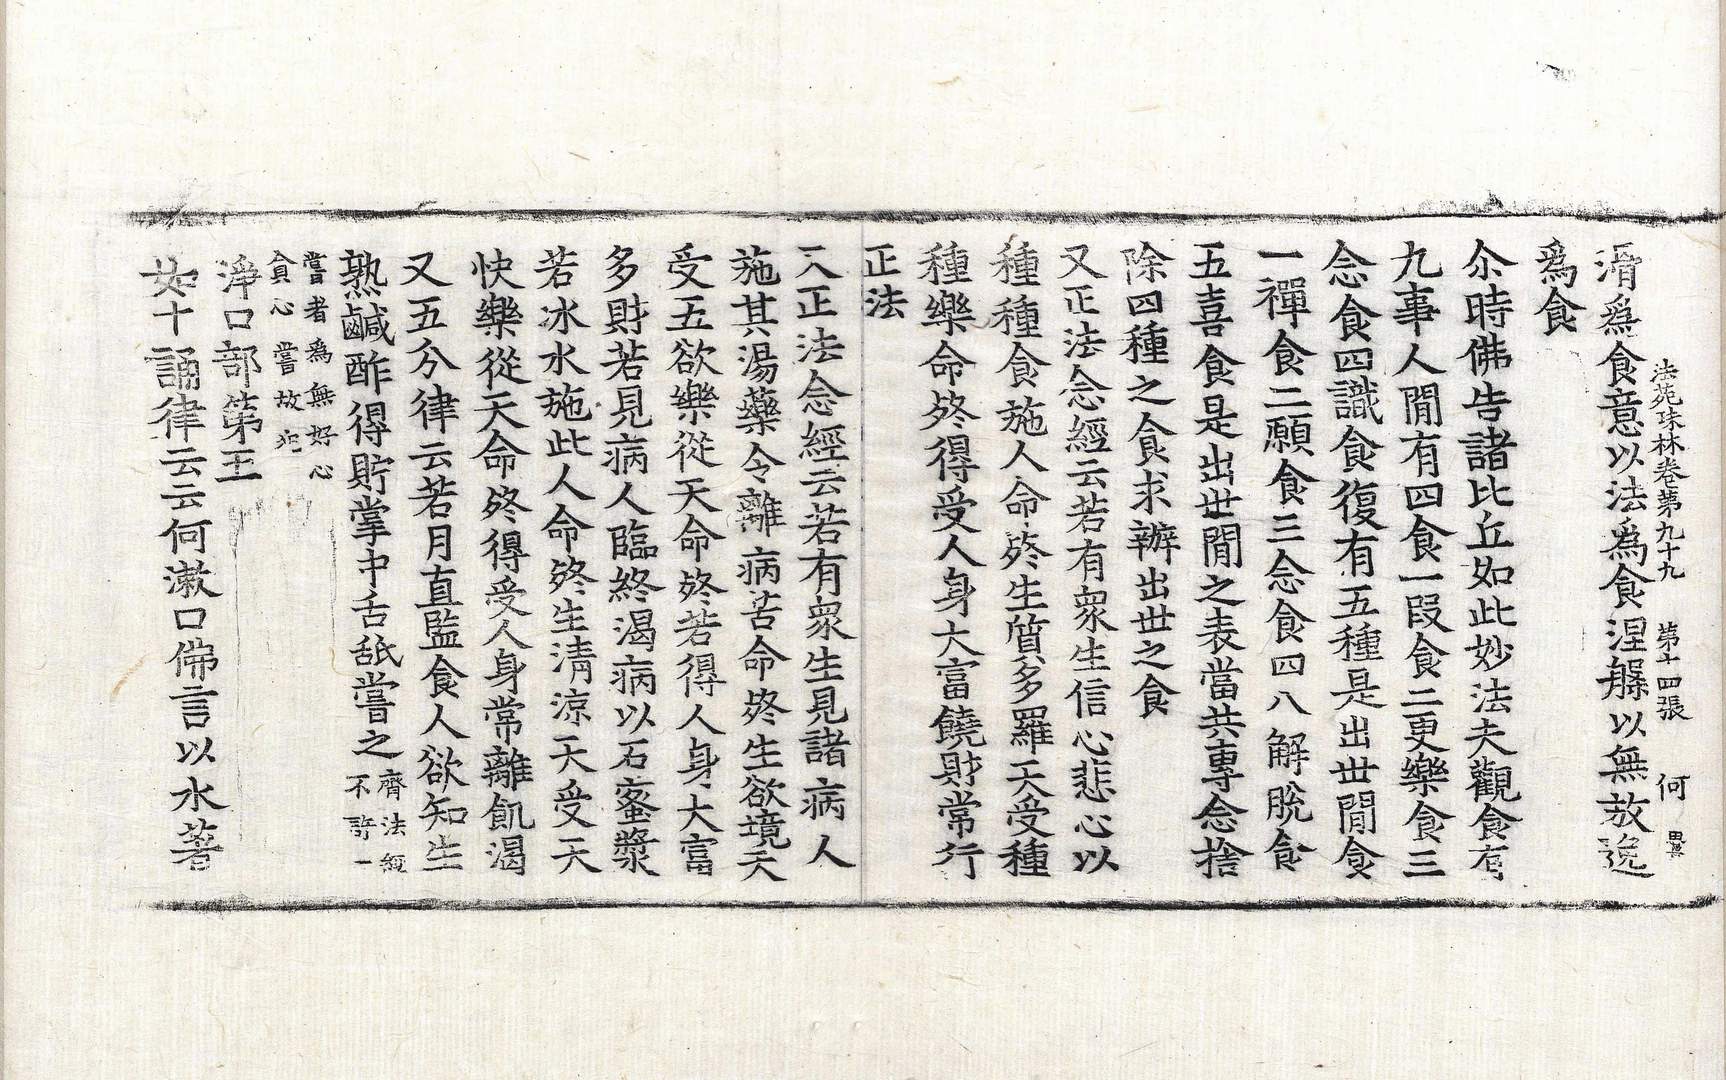 法苑珠林卷第九十九 第十四張 何
滑爲食意以法爲食涅槃以無放逸
爲食
尒時佛告諸比丘如此妙法夫觀食有
九事人閒有四食一段食二更樂食三
念食四識食復有五種是出世閒食
一禪食二願食三念食四八解脫食
五喜食是出世閒之表當共專念捨
除四種之食求辦出世之食
又正法念經云若有衆生信心悲心以
種種食施人命終生質多羅天受種
種樂命終得受人身大富饒財常行
正法
又正法念經云若有衆生見諸病人
施其湯藥令離病苦命終生欲境天
受五欲樂從天命終若得人身大富
多財若見病人臨終渴病以石蜜漿
若冰水施此人命終生清涼天受天
快樂從天命終得受人身常離飢渴
又五分律云若月直監食人欲知生
熟鹹酢得貯掌中舌舐嘗之齊法縱
不許一
嘗者爲無好心
貪心嘗故犯
淨口部第五
如十誦律云云何漱口佛言以水著